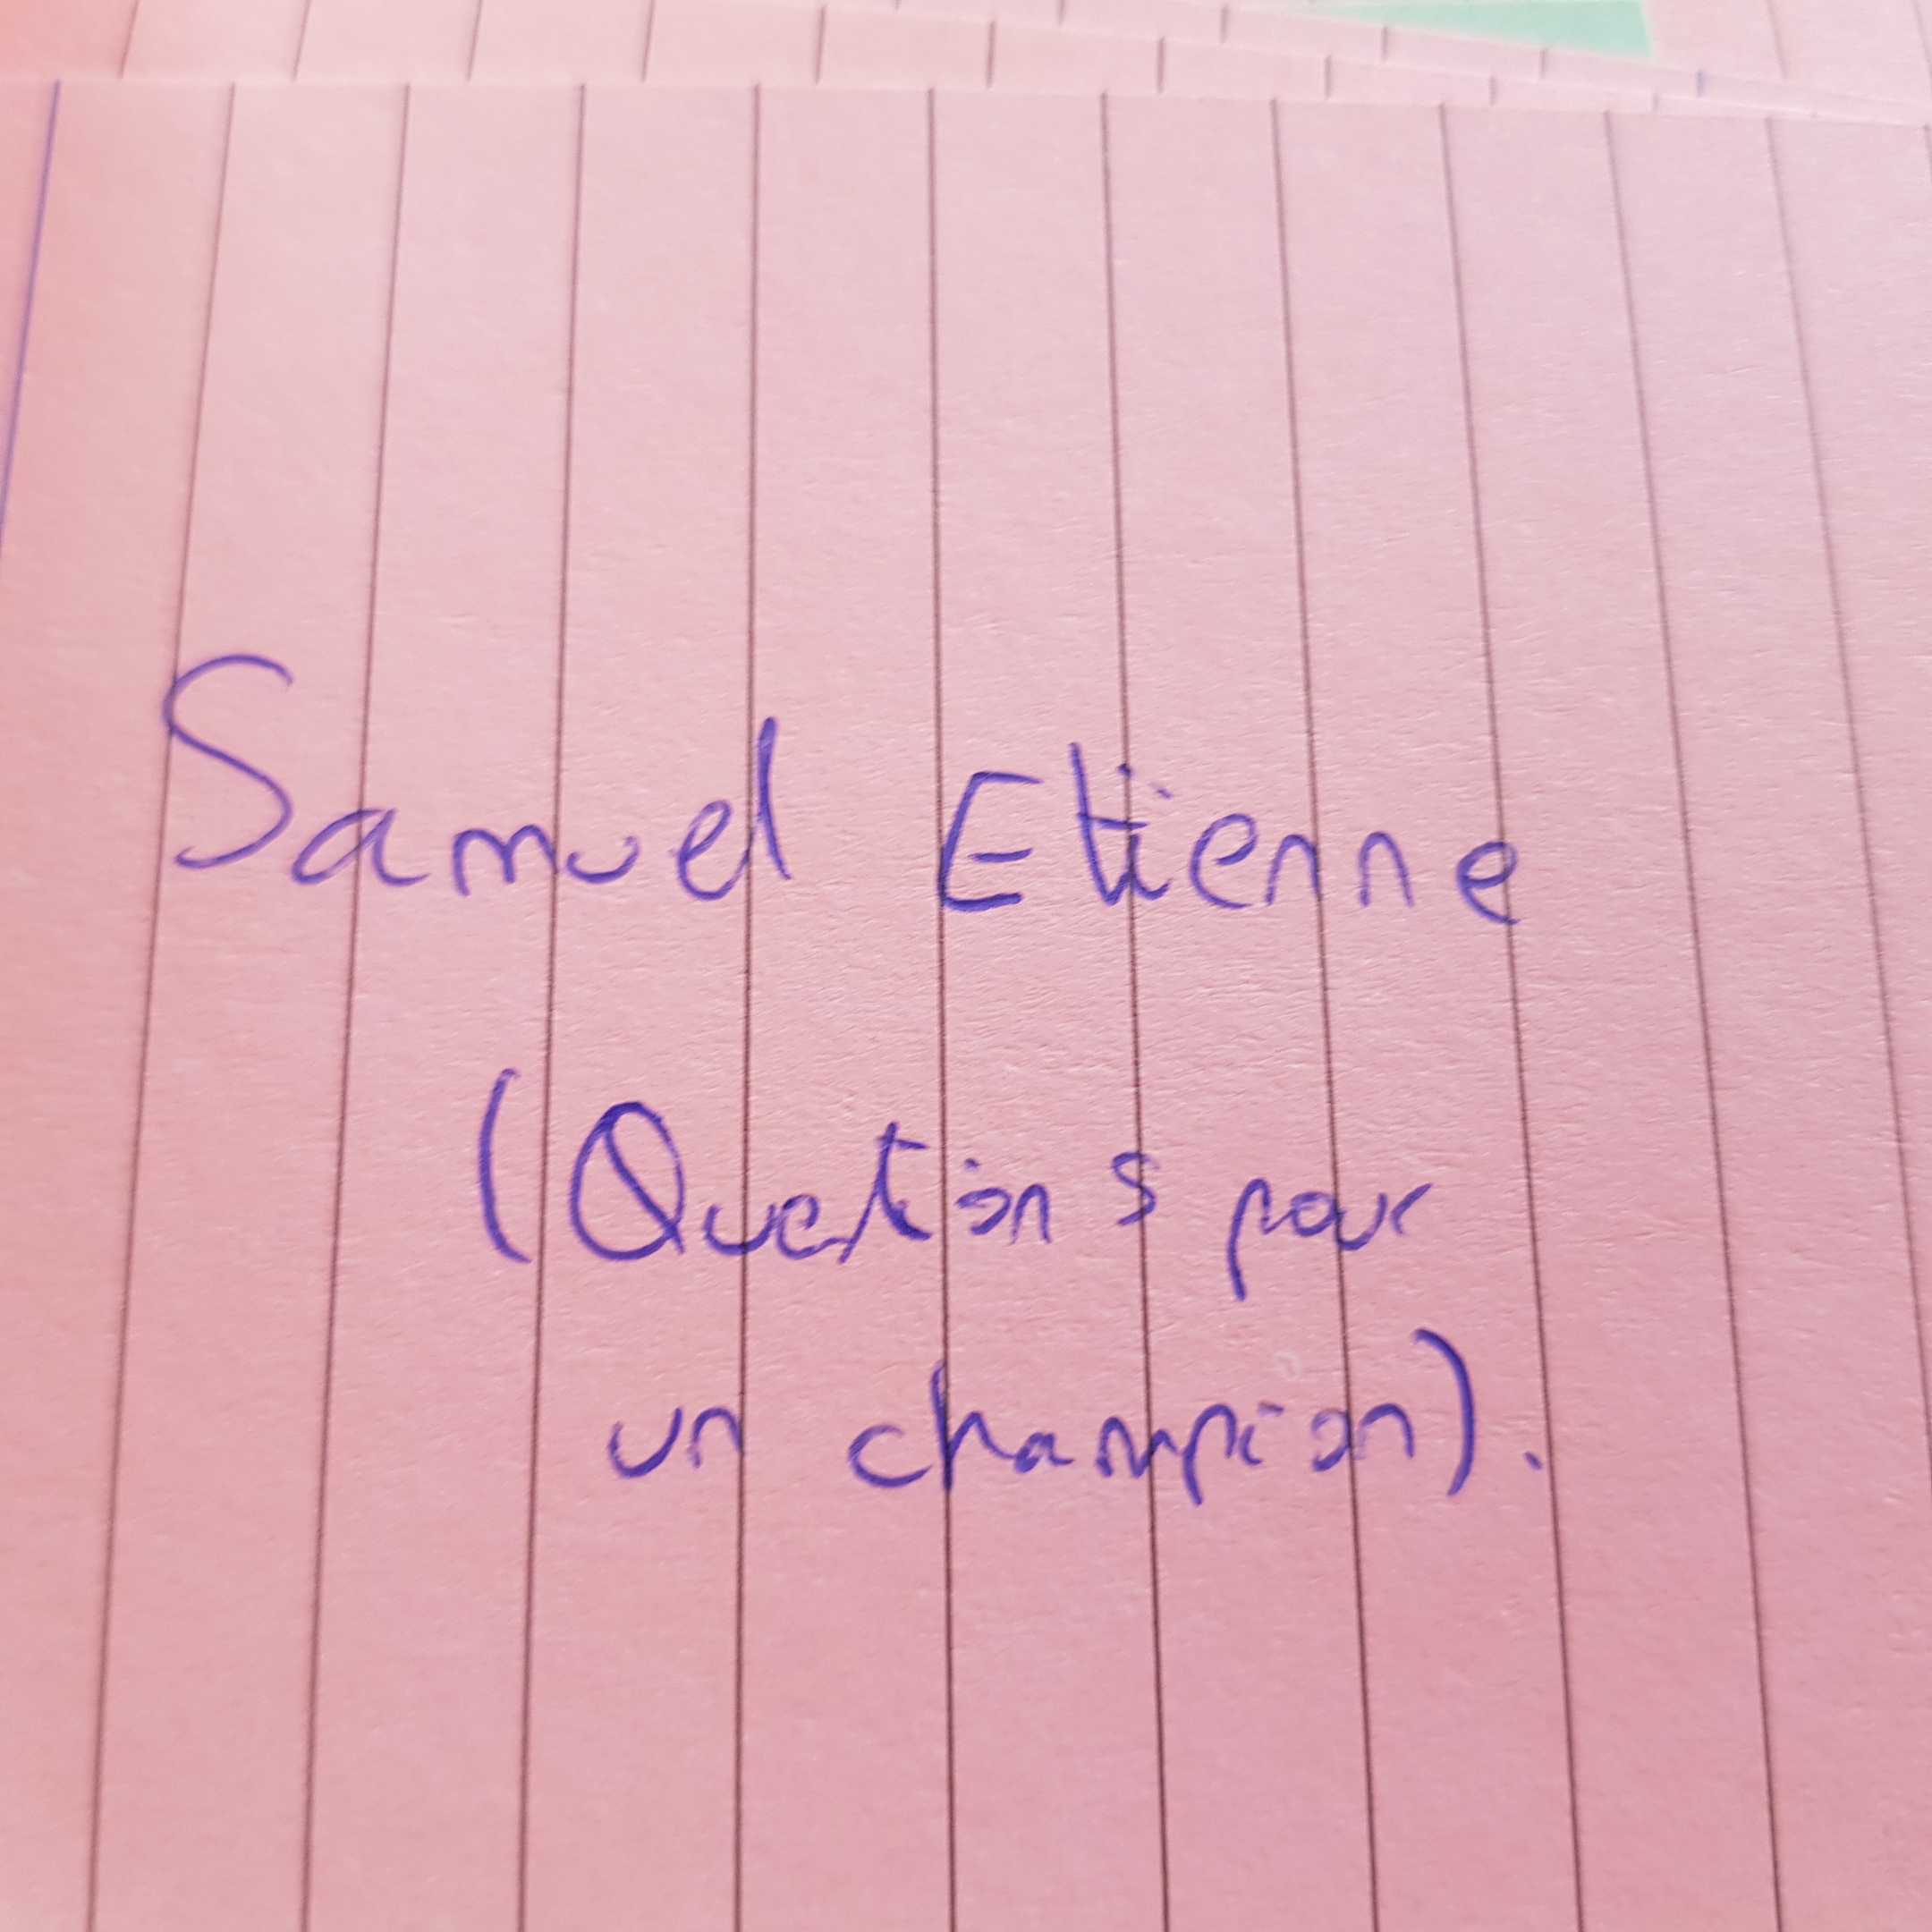 Samuel Etienne
(Questions pour
un champion).